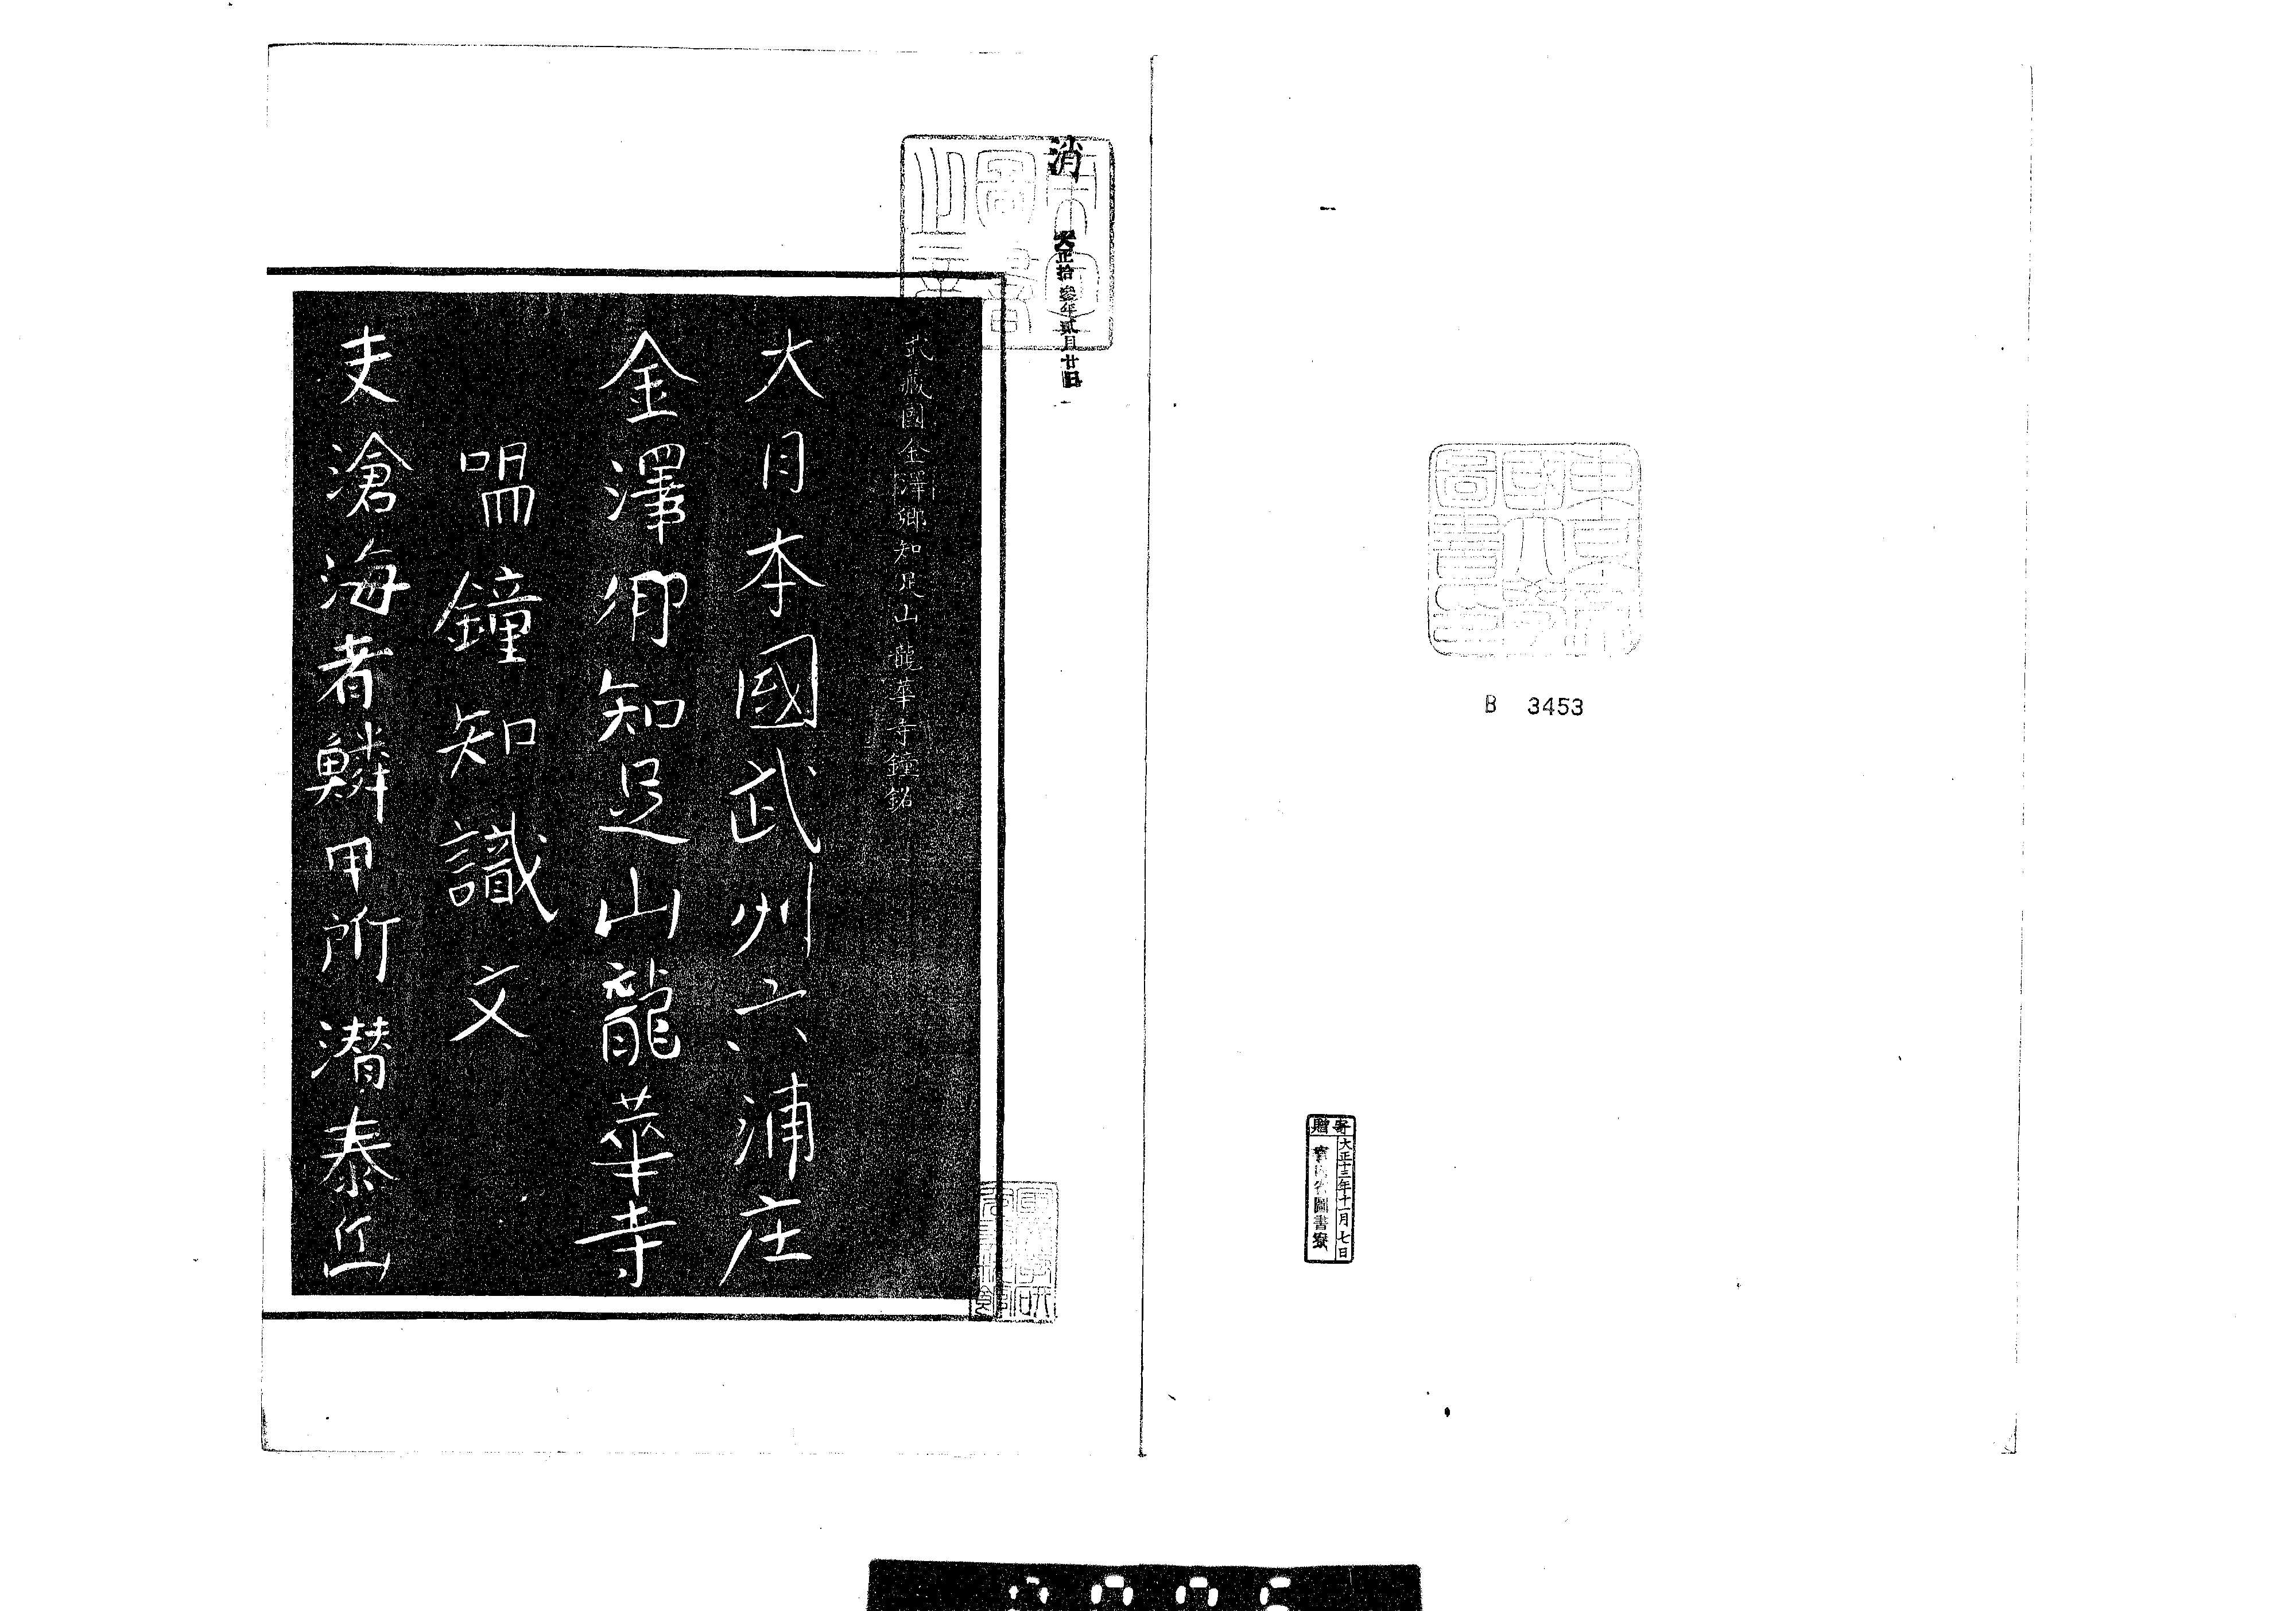 東京帝國大學圖書印
B 3453
寄贈
大正十三年十一月七日
圖書寮
消
大正拾參年貳月廿
帝室圖書之章
武藏國金澤鄉知足山龍華寺鐘銘
大日本國武州六浦庄
金澤鄉知足山龍華寺
唱鐘知識文
夫滄海者鱗甲所潜泰岳